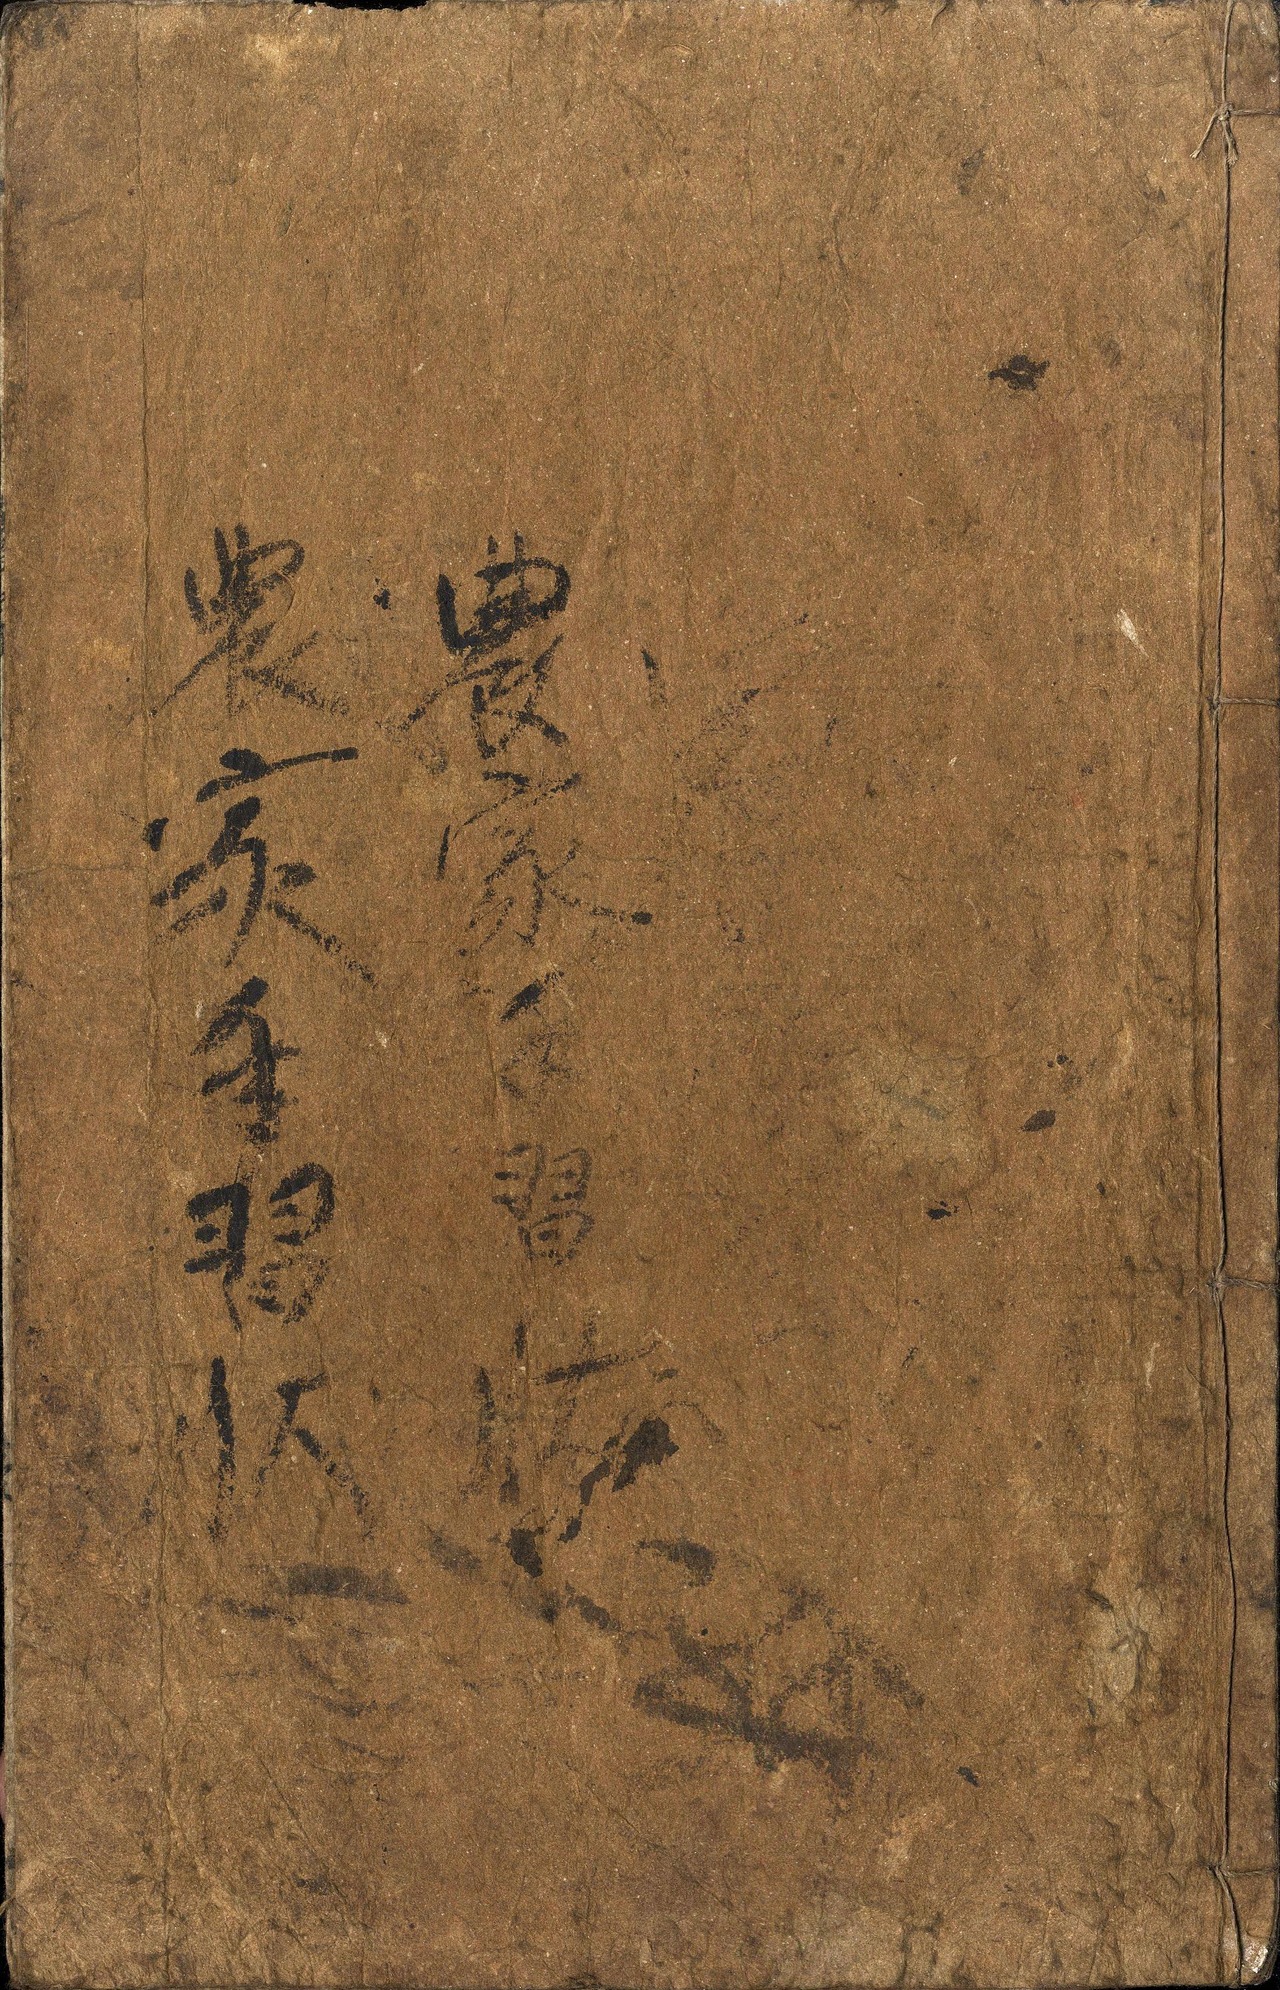 農家手習状
農家手習状